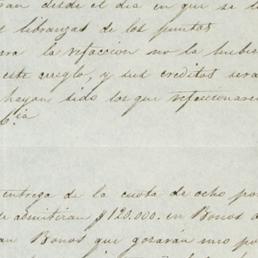 ran desde el dia en que se l
s libranzas de los puntos
rra la refaccion no la hubie
este arreglo, y sus creditos sera
hayan sido los que refaccionaro
Cia
entrega de la cuota de ocho por
se admitiran $120.000. en Bonos
an Bonos que gozarán uno po